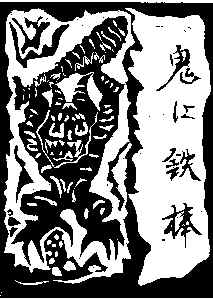 鬼に鉄棒